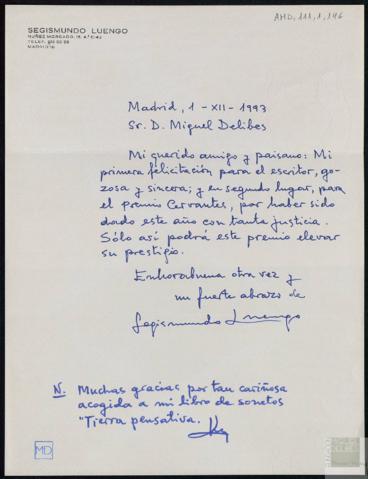 AMD, 111, 1, 146
SEGISMUNDO LUENGO
MADRID
Madrid, 1 - XII - 1993
Sr. D. Miguel Delibes
Mi querido amigo y paisano: Mi
primera felicitación para el escritor, go-
zosa y sincera; y en segundo lugar, para
el Premio Cervantes, por haber sido
dado este año con tanta justicia.
Sólo así podrá este premio elevar
su prestigio.
Enhorabuena otra vez y
un fuerte abrazo de
Segismundo Luengo
N. Muchas gracias por tan cariñosa
acogida a mi libro de sonetos
"Tierra pensativa.
MD